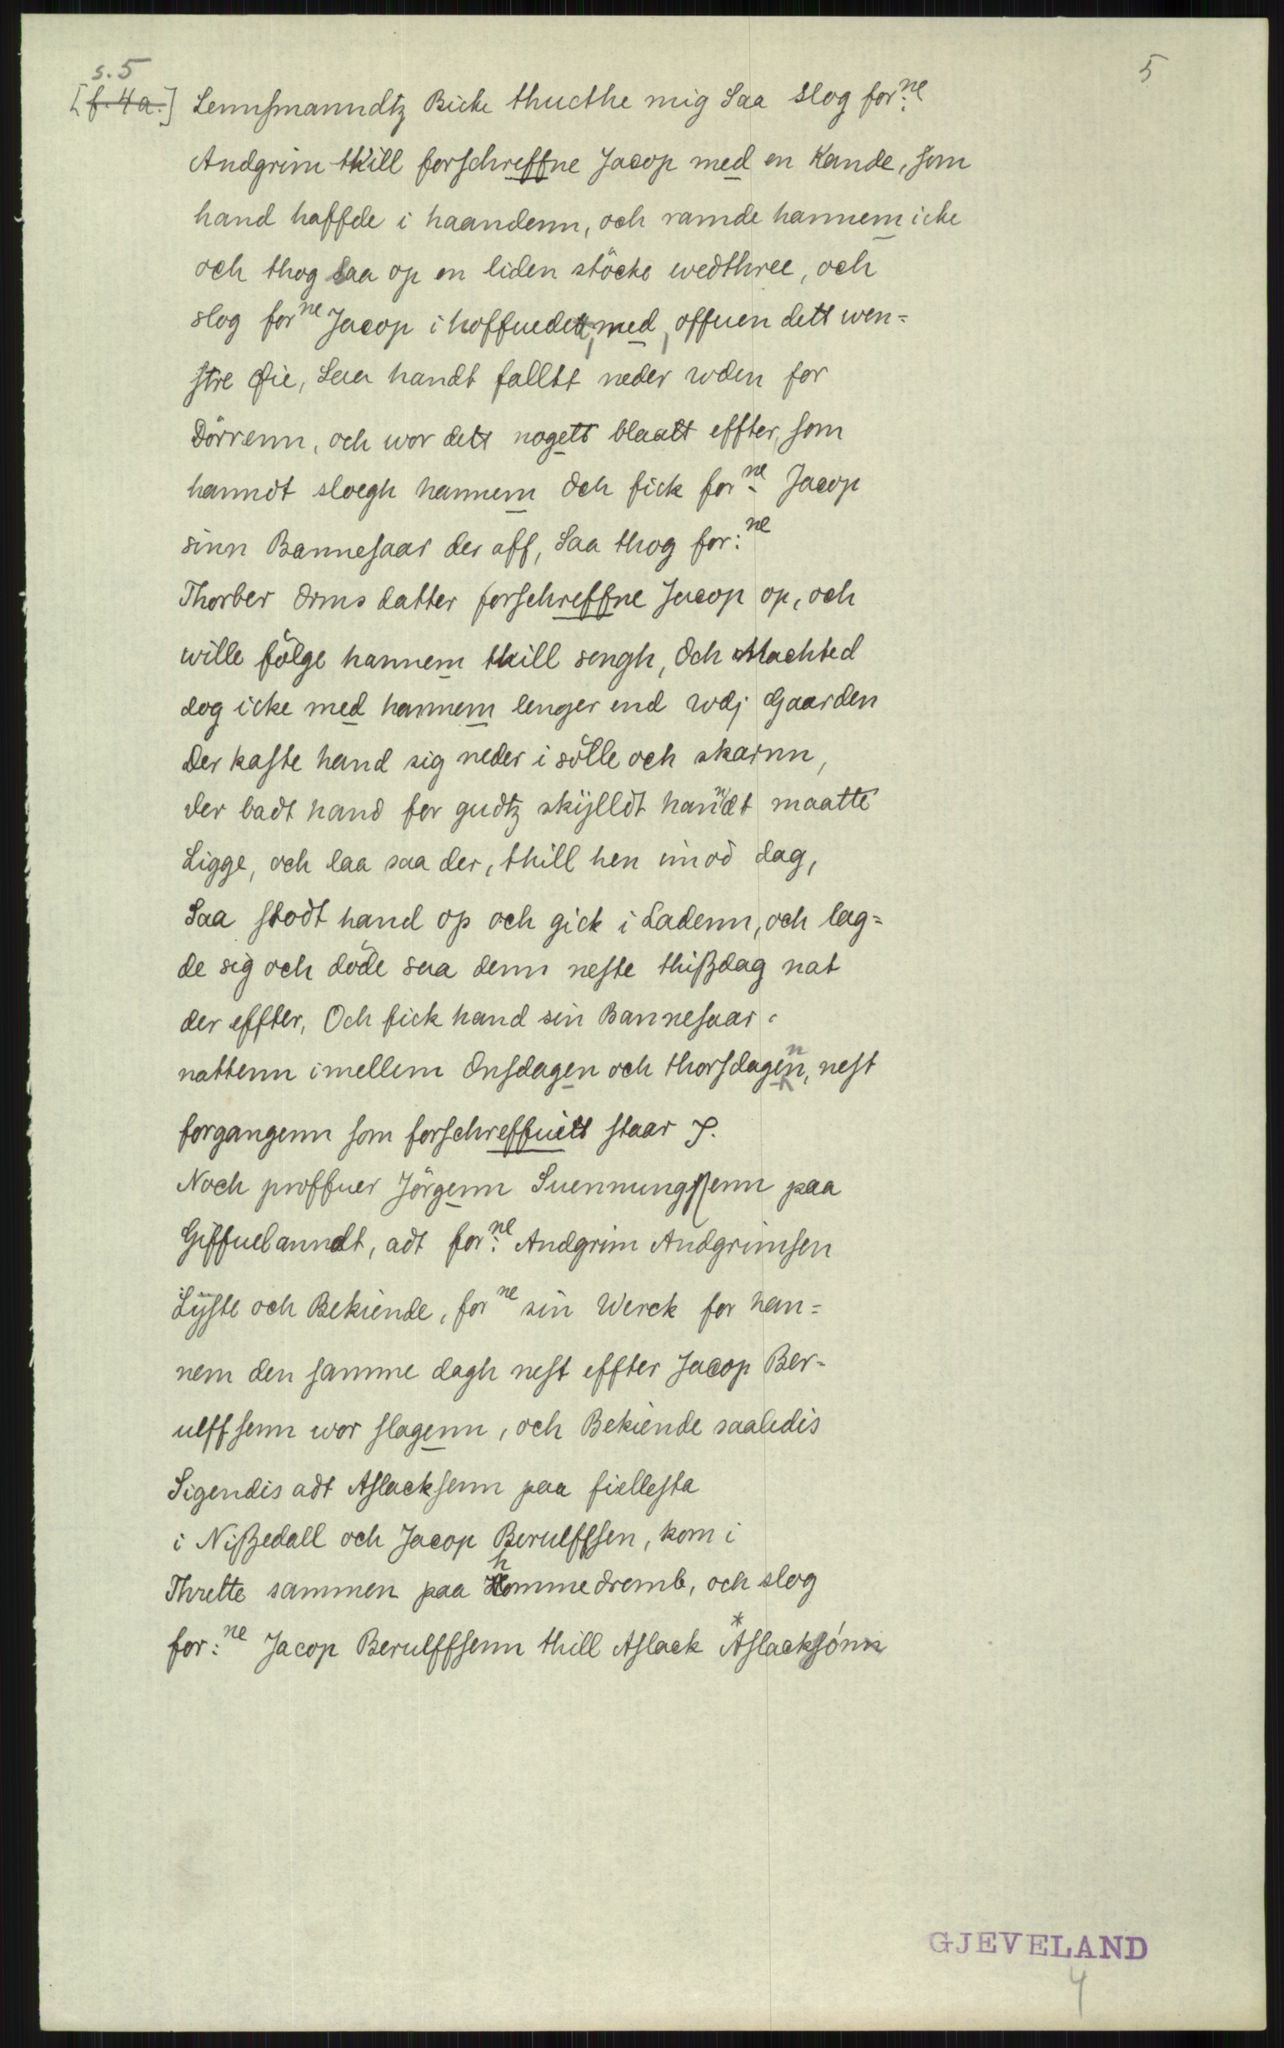 s. 5
5
[f. 4a.] Lennsmanndtz Bicke thucthe mig Saa slog for:ne
Andgrim thill forschreffne Jacop med en Kande, som
hand haffde i haandenn, och ramde hannem icke
och thog saa op en liden stöcke wedthree, och
slog forne Jacop i hoffuedett, med, offuen dett wen=
stre Øie, Saa handt falltt neder wden for
Dörrenn, och wor dett nogett blaatt effter, som
hanndt sloegh hannem Och fick for:ne Jacop
sinn Bannesaar der aff, Saa thog for:ne
Thorber Orms datter forschreffne Jacop op, och
wille fölge hannem thill sengh, Och Machted
dog icke med hannem lenger end wdj Gaarden
Der kaste hand sig neder i sölle och skarnn,
der badt hand for gudtz skÿlldt hanndt maatte
Ligge, och laa saa der, thill hen imod dag,
Saa stodt hand op och gick i Ladenn, och lag=
de sig och döde saa denn neste thißdag nat
der effter, Och fick hand sin Bannesaar
nattenn imellem Onsdagen och thorsdagenn, nest
forgangenn som forschreffuitt staar ϑ.
Noch proffuer Jörgenn Suennungssenn paa
Giffuelanndt, adt for:ne Andgrim Andgrimsen
Lÿste och Bekiende, forne sin Werck for han=
nem den samme dagh nest effter Jacop Ber=
ulffsenn wor slagenn, och Bekiende saaledis
Sigendis adt Aslacksenn paa fiellesta
i Nißedall och Jacop Berulffsen, kom i
Thrette sammen paa hommedremb, och slog
for:ne Jacop Berulffsenn thill Aslack *Aslacksönn
GJEVELAND
4